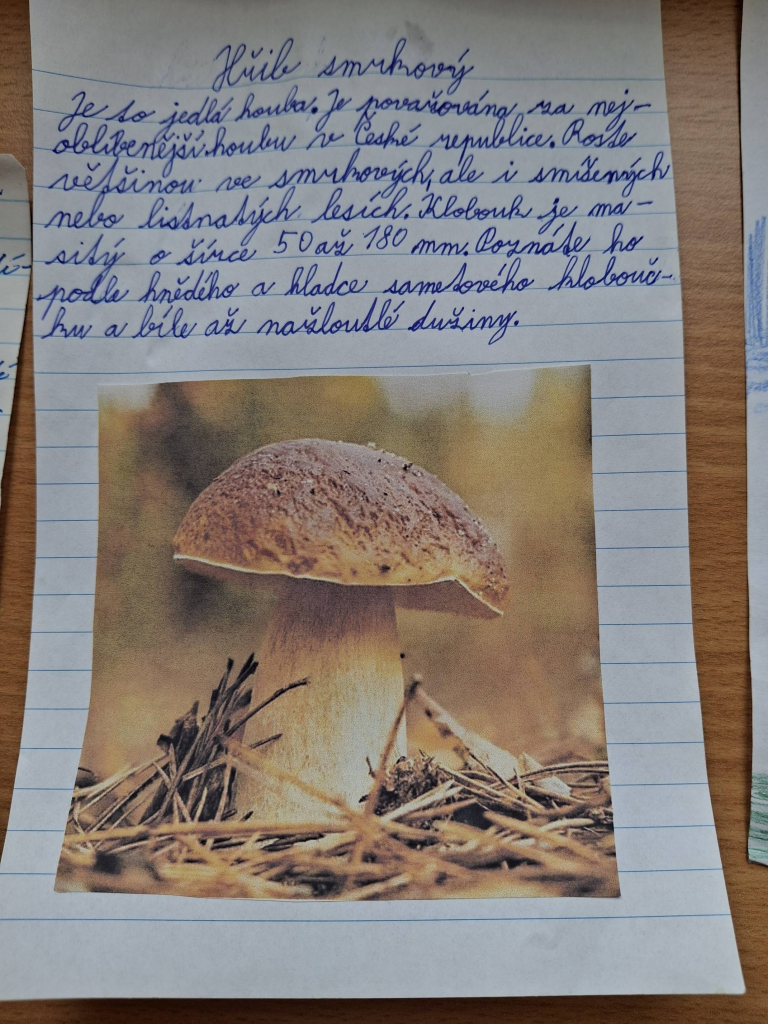 Hřib smrkový
Je to jedlá houba. Je považována za nej-
oblíbenější houbu v České republice. Roste
většinou ve smrkových, ale i smíšených
nebo listnatých lesích. Klobouk je ma-
sitý o šířce 50 až 180 mm. Poznáte ho
podle hnědého a hladce sametového klobouč-
ku a bíle až nažloutlé dužiny.